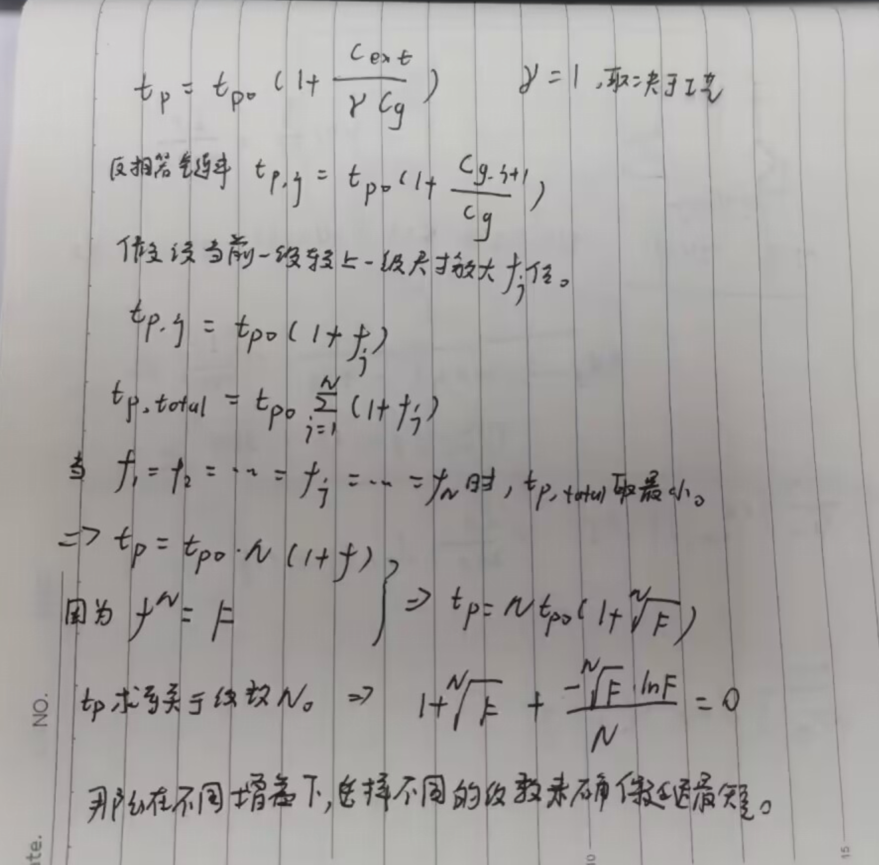 t_p = t_po (1 + C_ext / γ C_g)  γ = 1, 取决于工艺
反相器链延时 t_p,j = t_po (1 + C_g,j+1 / C_g)
假设当前一级较上一级尺寸放大 f_j 倍。
t_p,j = t_po (1 + f_j)
t_p,total = t_po Σ_{j=1}^{N} (1 + f_j)
当 f_1 = f_2 = … = f_j = … = f_N 时, t_p,total 取最小。
=> t_p = t_po · N (1 + f)
因为 f^N = F } => t_p = N t_po (1 + ᴺ√F)
t_p 求导关于级数 N。 => 1 + ᴺ√F + (-ᴺ√F · lnF) / N = 0
那么在不同增益下, 选择不同的级数来确保延迟最短。
NO.
ate.
10
15